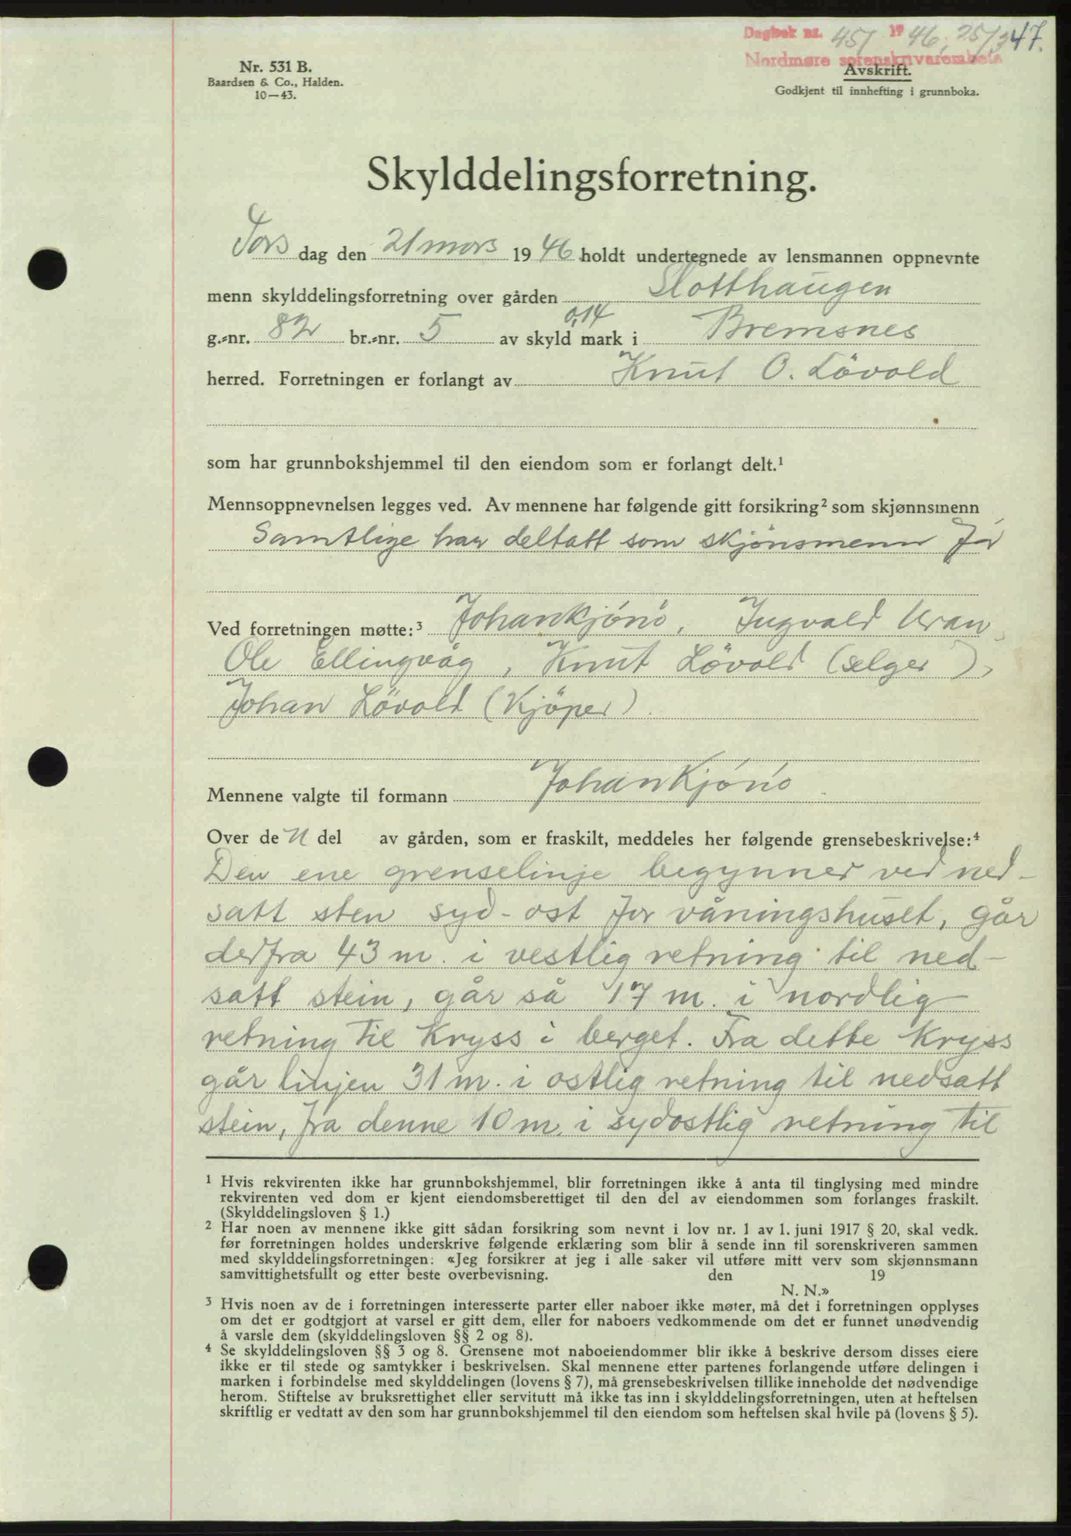 Dagbok nr. 451 1946, 25/3 47.
Nordmøre sorenskriverembete
Nr. 531 B.
Baardsen & Co., Halden.
10—43.
Avskrift.
Godkjent til innhefting i grunnboka.
Skylddelingsforretning.
Tors dag den 21 mars 1946 holdt undertegnede av lensmannen oppnevnte
menn skylddelingsforretning over gården Slotthaugen
g.-nr. 82 br.-nr. 5 av skyld 0,14 mark i Bremsnes
herred. Forretningen er forlangt av Knut O. Lövold
som har grunnbokshjemmel til den eiendom som er forlangt delt.¹
Mennsoppnevnelsen legges ved. Av mennene har følgende gitt forsikring² som skjønnsmenn
Samtlige har deltatt som skjönsmenn før
Ved forretningen møtte:³ Johan Kjönö, Ingvald Uran,
Ole Ellingvåg, Knut Lövold (selger),
Johan Lövold (Kjöper).
Mennene valgte til formann Johan Kjönö.
Over den del av gården, som er fraskilt, meddeles her følgende grensebeskrivelse:⁴
Den ene grenselinje begynner ved ned-
satt sten syd-ost for våningshuset, går
derfra 43 m. i vestlig retning til ned-
satt stein, går så 17 m. i nordlig
retning til Kryss i berget. Fra dette Kryss
går linjen 31 m. i ostlig retning til nedsatt
stein, fra denne 10 m. i sydostlig retning til
¹ Hvis rekvirenten ikke har grunnbokshjemmel, blir forretningen ikke å anta til tinglysing med mindre
rekvirenten ved dom er kjent eiendomsberettiget til den del av eiendommen som forlanges fraskilt.
(Skylddelingsloven § 1.)
² Har noen av mennene ikke gitt sådan forsikring som nevnt i lov nr. 1 av 1. juni 1917 § 20, skal vedk.
før forretningen holdes underskrive følgende erklæring som blir å sende inn til sorenskriveren sammen
med skylddelingsforretningen: «Jeg forsikrer at jeg i alle saker vil utføre mitt verv som skjønnsmann
samvittighetsfullt og etter beste overbevisning. den 19
N. N.»
³ Hvis noen av de i forretningen interesserte parter eller naboer ikke møter, må det i forretningen opplyses
om det er godtgjort at varsel er gitt dem, eller for naboers vedkommende om det er funnet unødvendig
å varsle dem (skylddelingsloven §§ 2 og 8).
⁴ Se skylddelingsloven §§ 3 og 8. Grensene mot naboeiendommer blir ikke å beskrive dersom disses eiere
ikke er til stede og samtykker i beskrivelsen. Skal mennene etter partenes forlangende utføre delingen i
marken i forbindelse med skylddelingen (lovens § 7), må grensebeskrivelsen tillike inneholde det nødvendige
herom. Stiftelse av bruksrettighet eller servitutt må ikke tas inn i skylddelingsforretningen, uten at heftelsen
skriftlig er vedtatt av den som har grunnbokshjemmel til den eiendom som heftelsen skal hvile på (lovens § 5).